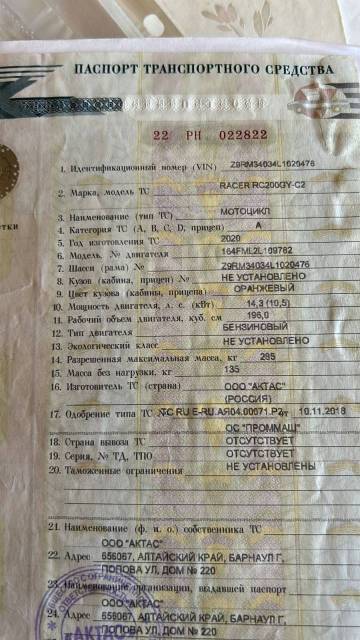 ПАСПОРТ ТРАНСПОРТНОГО СРЕДСТВА
22 РН 022822
1. Идентификационный номер (VIN) Z9RM34034L1020476
2. Марка, модель ТС RACER RC200GY-C2
3. Наименование (тип ТС) МОТОЦИКЛ
4. Категория ТС (А, В, С, D, прицеп) А
5. Год изготовления ТС 2020
6. Модель, № двигателя 164FML2L109762
7. Шасси (рама) № Z9RM34034L1020476
8. Кузов (кабина, прицеп) № НЕ УСТАНОВЛЕНО
9. Цвет кузова (кабины, прицепа) ОРАНЖЕВЫЙ
10. Мощность двигателя, л. с. (кВт) 14,3 (10,5)
11. Рабочий объем двигателя, куб. см 196,0
12. Тип двигателя БЕНЗИНОВЫЙ
13. Экологический класс НЕ УСТАНОВЛЕНО
14. Разрешенная максимальная масса, кг 285
15. Масса без нагрузки, кг 135
16. Изготовитель ТС (страна) ООО "АКТАС"
(РОССИЯ)
17. Одобрение типа ТС № ТС RU E-RU.АЯ04.00671.Р2 от 10.11.2018
ОС "ПРОММАШ"
18. Страна вывоза ТС ОТСУТСТВУЕТ
19. Серия, № ТД, ТПО ОТСУТСТВУЕТ
20. Таможенные ограничения НЕ УСТАНОВЛЕНЫ
21. Наименование (ф. и. о.) собственника ТС
ООО "АКТАС"
22. Адрес 656067, АЛТАЙСКИЙ КРАЙ, БАРНАУЛ Г,
ПОПОВА УЛ, ДОМ № 220
23. Наименование организации, выдавшей паспорт
ООО "АКТАС"
24. Адрес 656067, АЛТАЙСКИЙ КРАЙ, БАРНАУЛ Г,
ПОПОВА УЛ, ДОМ № 220
"АКТАС"